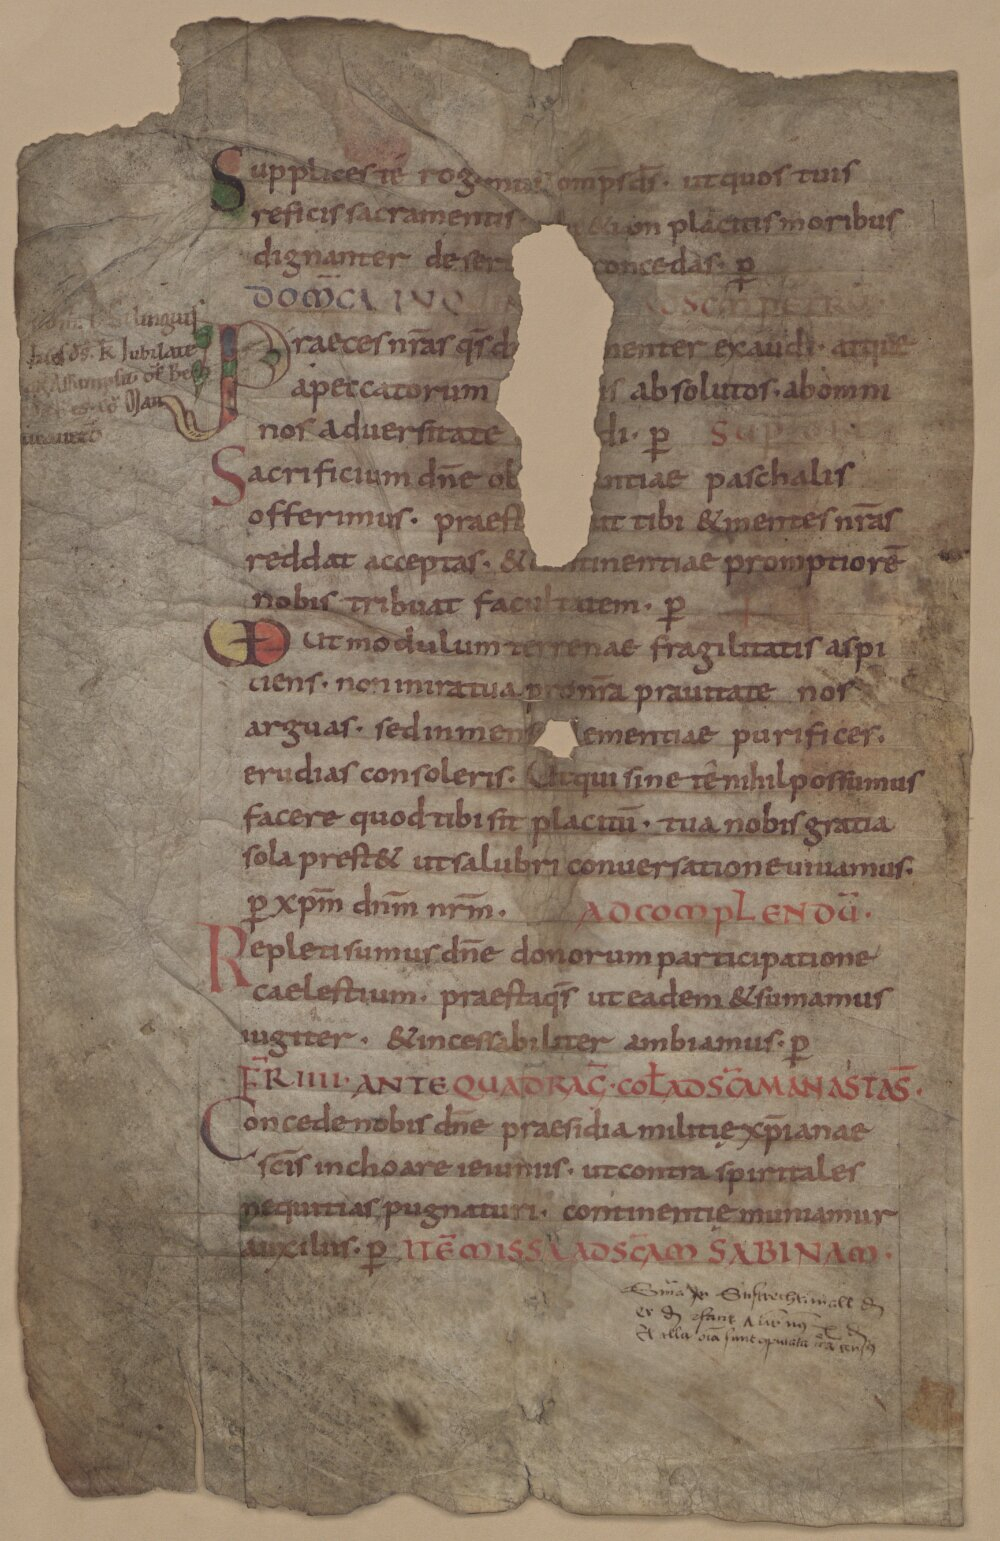 Supplices te rogamus omps ds· ut quos tuis
reficis sacramentis· &ion placitis moribus
dignanter deser concedas· p̄
DOMCA IN QUIN AD SCM PETRŪ
Praeces nr̄as qs̄ d menter exaudi· atque
apeccatorum s absolutos· abomni
nos aduersitate di· p̄ SUP OBL
Sacrificium dn̄e ob antiae paschalis
offerimus· praest ut tibi & mentes nr̄as
reddat acceptas· & continentiae promptiorē
nobis tribuat facultatem· p̄
UD Qui modulum terrenae fragilitatis aspi
ciens· non inira tua pro nr̄a prauitate nos
arguas· sed inmens ementiae purifices·
erudias consoleris· Ut qui sine te nihil possumus
facere quod tibi sit placitū· tua nobis gratia
sola prest& ut salubri conuersatione uiuamus·
p̄ xpm̄ dnm̄ nrm̄· AD COMPLENDŪ·
Repleti sumus dn̄e donorum participatione
caelestium· praesta qs̄ ut eadem & sumamus
iugiter· & incessabiliter ambiamus· p̄
FR̄ IIII· ANTE QUADRAG̅· COL̄ AD SC̄AM ANASTAS̄·
Concede nobis dn̄e praesidia militię xp̄ianae
sc̄is inchoare ieiuniis· ut contra spiritales
nequitias pugnaturi· continentię muniamur
auxiliis· p̄ ITĒ MISSA AD SC̄AM SABINAM·